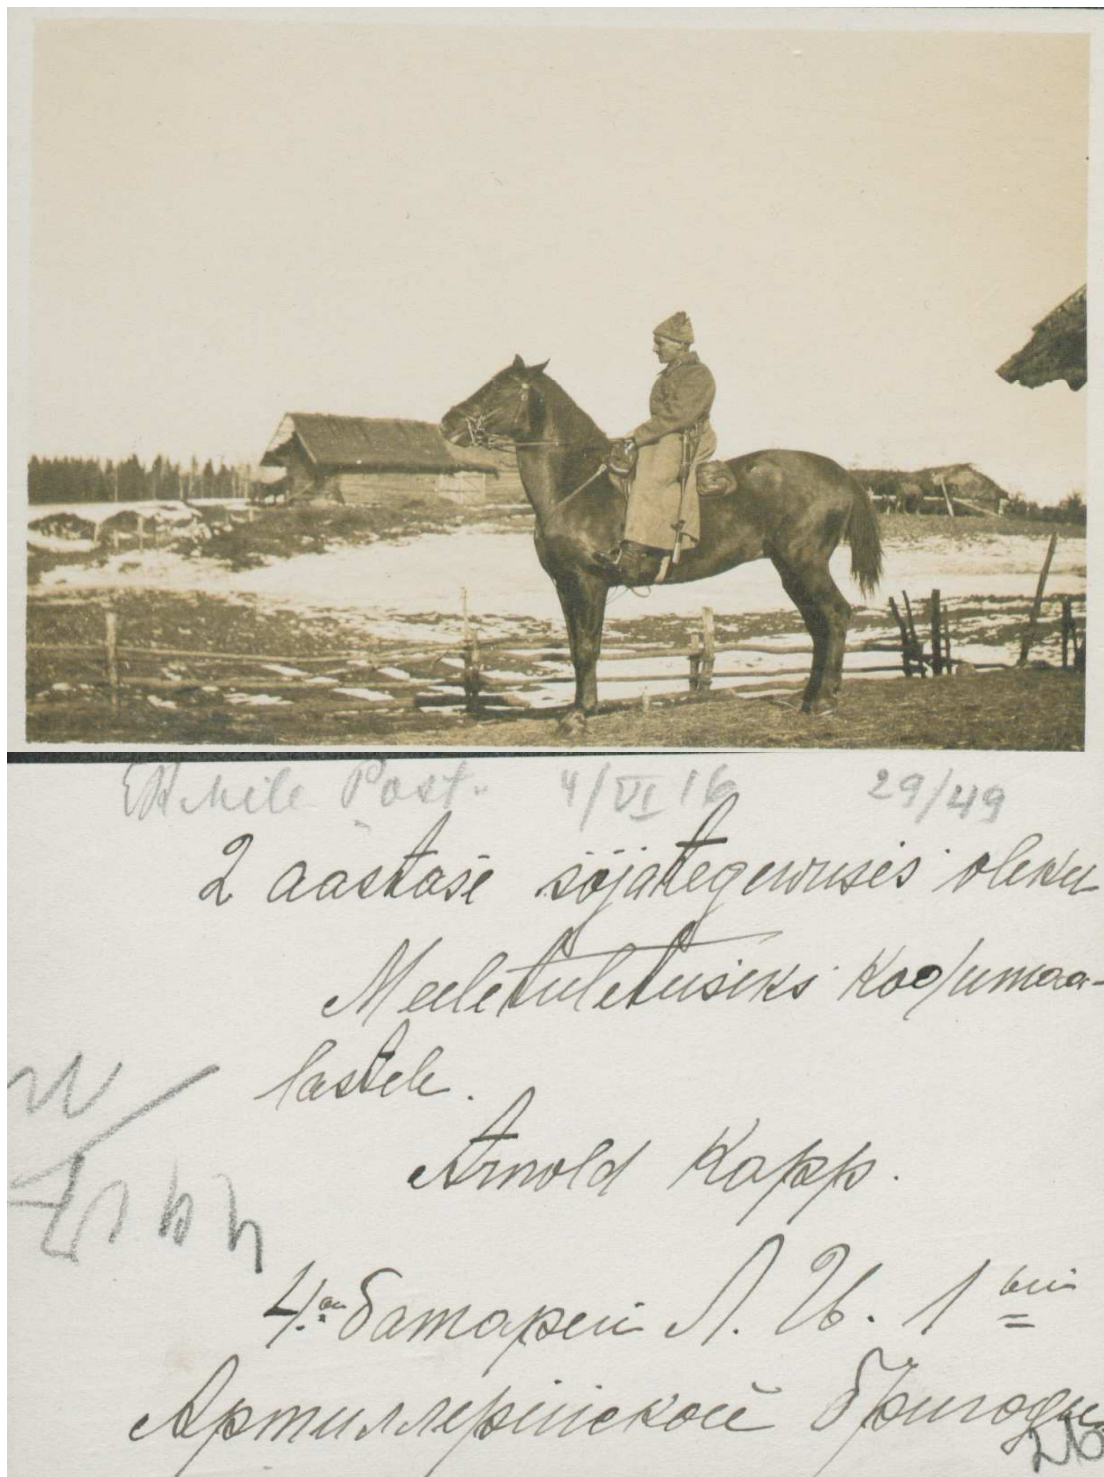 Post. 4/VI 16 29/49
2 aastase sõjategewuses oleku
Meeletuletuseks Kodumaa-
lastele.
Arnold Kapp.
4ая батареи Л. Гв. 1ой
Артиллерійской бригады